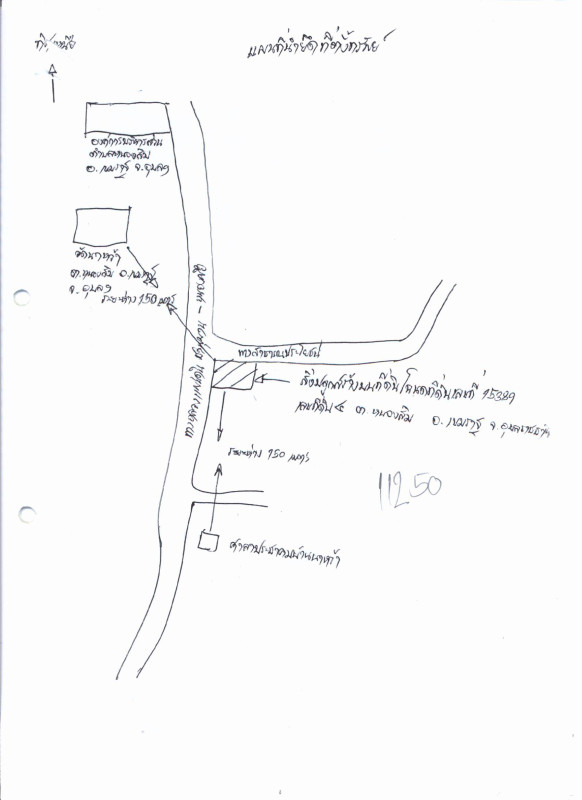 แผนที่นำยึดที่ตั้งทรัพย์
ทิศเหนือ
องค์การบริหารส่วน
ตำบลหนองสิม
อ.เขมราฐ จ.อุบลฯ
วัดนาหว้า
ต.หนองสิม อ.เขมราฐ
จ.อุบลฯ
ระยะห่าง 150 เมตร
ทางสาธารณประโยชน์
สิ่งปลูกสร้างบนที่ดิน โฉนดที่ดินเลขที่ 15389
เลขที่ดิน ๔ ต.หนองสิม อ.เขมราฐ จ.อุบลราชธานี
ระยะห่าง 150 เมตร
11250
ศาลาประชาคมบ้านนาหว้า